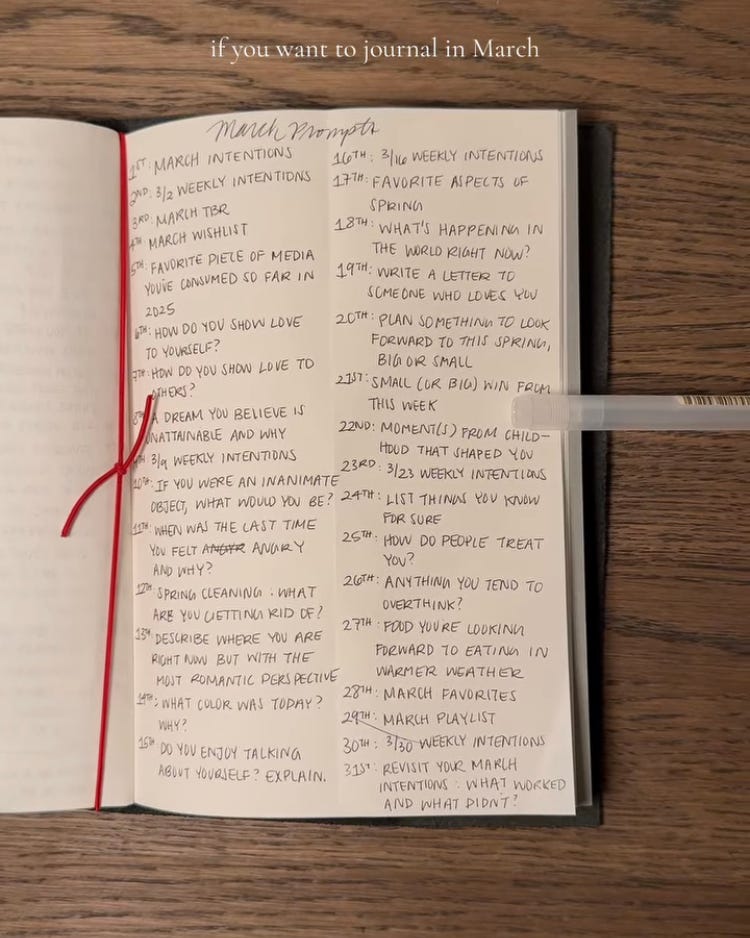 if you want to journal in March
March Prompts
1ST: MARCH INTENTIONS
2ND: 3/2 WEEKLY INTENTIONS
3RD: MARCH TBR
4TH MARCH WISHLIST
5TH: FAVORITE PIECE OF MEDIA
YOU'VE CONSUMED SO FAR IN
2025
6TH: HOW DO YOU SHOW LOVE
TO YOURSELF?
7TH: HOW DO YOU SHOW LOVE TO
OTHERS?
8TH A DREAM YOU BELIEVE IS
UNATTAINABLE AND WHY
9TH 3/9 WEEKLY INTENTIONS
10TH: IF YOU WERE AN INANIMATE
OBJECT, WHAT WOULD YOU BE?
11TH: WHEN WAS THE LAST TIME
YOU FELT ANGYR ANGRY
AND WHY?
12TH SPRING CLEANING: WHAT
ARE YOU GETTING RID OF?
13TH: DESCRIBE WHERE YOU ARE
RIGHT NOW BUT WITH THE
MOST ROMANTIC PERSPECTIVE
14TH: WHAT COLOR WAS TODAY?
WHY?
15TH DO YOU ENJOY TALKING
ABOUT YOURSELF? EXPLAIN.
16TH: 3/16 WEEKLY INTENTIONS
17TH: FAVORITE ASPECTS OF
SPRING
18TH: WHAT'S HAPPENING IN
THE WORLD RIGHT NOW?
19TH: WRITE A LETTER TO
SOMEONE WHO LOVES YOU
20TH: PLAN SOMETHING TO LOOK
FORWARD TO THIS SPRING,
BIG OR SMALL
21ST: SMALL (OR BIG) WIN FROM
THIS WEEK
22ND: MOMENT(S) FROM CHILD-
HOOD THAT SHAPED YOU
23RD: 3/23 WEEKLY INTENTIONS
24TH: LIST THINGS YOU KNOW
FOR SURE
25TH: HOW DO PEOPLE TREAT
YOU?
26TH: ANYTHING YOU TEND TO
OVERTHINK?
27TH: FOOD YOU'RE LOOKING
FORWARD TO EATING IN
WARMER WEATHER
28TH: MARCH FAVORITES
29TH: MARCH PLAYLIST
30TH: 3/30 WEEKLY INTENTIONS
31ST: REVISIT YOUR MARCH
INTENTIONS: WHAT WORKED
AND WHAT DIDN'T?